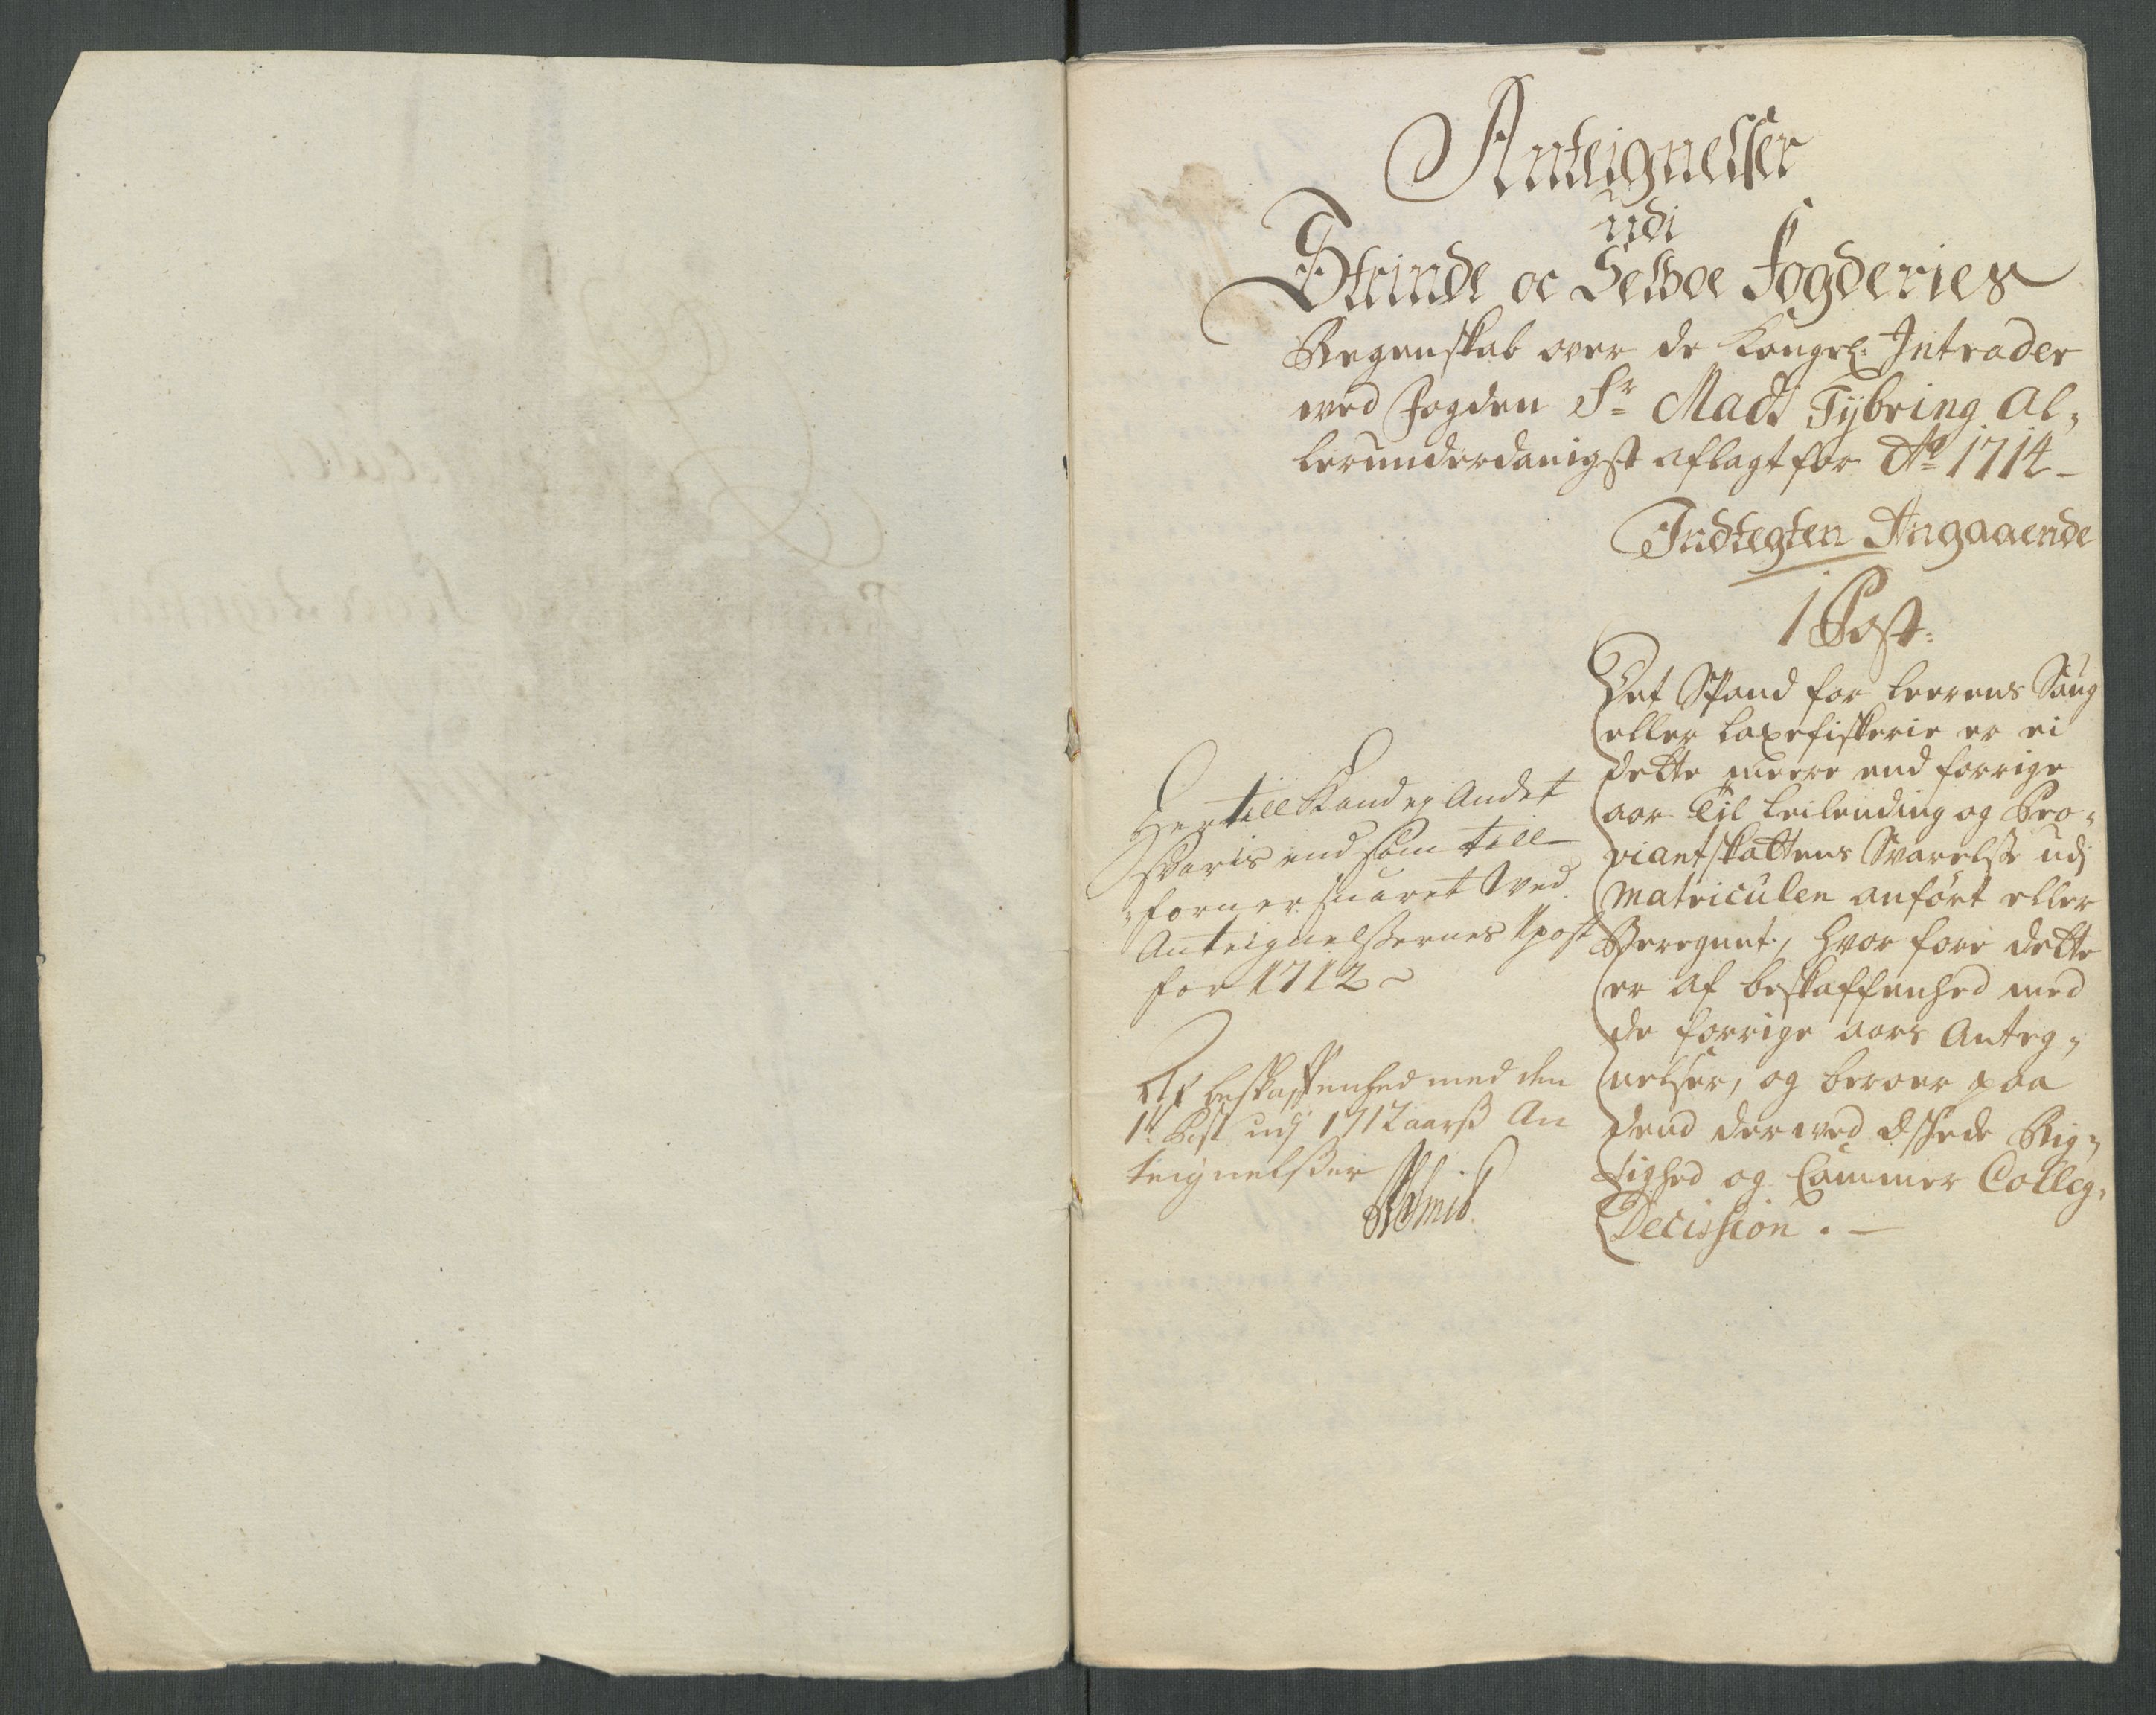 Anteignelser
udi
Strinde oc Selboe Fogderies
Regenskab over de Kongel: Intrader
ved Fogden Sr Mads Tybring Al,
lerunderdanigst aflagt for Ao 1714
Indtegten Angaaende
1 Post:
Det Spand for leerens
eller Laxefiskerie er ei
dette meere end forrige
aar Til Leilending og Pro,
viantskattens Svarelse udj
Matriculen anført eller
Beregnet, hvor fore dette
er af beskaffenhed med
de forrige aars Anteg,
nelser, og beroer paa
dend derved Rig,
tighed og Cammer Colleg,
Decission.
Hertill Kand ej Andet
svaris end som till
forn er suaret Ved
Anteignelsernes 1 post
for 1712
Af beskaffenhed med den
1te Post udj 1712 aars An
teignelser